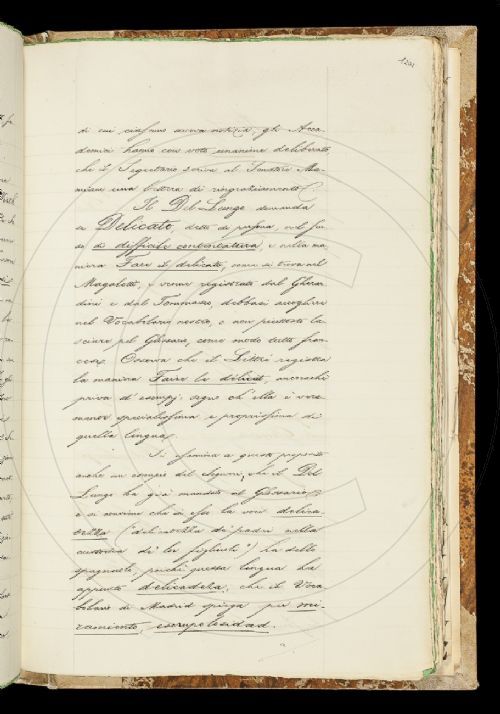 1201
di cui ciascuno aveva notizia, gli Acca-
demici hanno con voto unanime deliberato
che il Segretario scriva al Senatore Ma-
miani una lettera di ringraziamento.
Il Del-Lungo domanda
se Delicato, detto di persona, nel sen-
so di difficile contentatura, e nella ma-
niera Fare il delicato, come si trova nel
Magalotti, e venne registrata dal Gherar-
dini e dal Tommaseo, debbasi accogliere
nel Vocabolario nostro, e non piuttosto la-
sciare pel Glossario, come modo tutto fran-
cese. Osserva che il Littré registra
la maniera Faire le délicat, ancorché
priva d'esempj: segno ch'ella è vera-
mente specialissima e propriissima di
quella lingua.
Si esamina a questo proposito
anche un esempio del Segneri, che il Del-
Lungo ha già mandato al Glossario,
e si conviene che in esso la voce delica-
tezza ("delicatezza di padri nella
custodia di lor figliuoli") ha dello
spagnuolo, poichè questa lingua ha
appunto delicadeza, che il Voca-
bolario di Madrid spiega per mi-
ramiento, escrupolosidad.